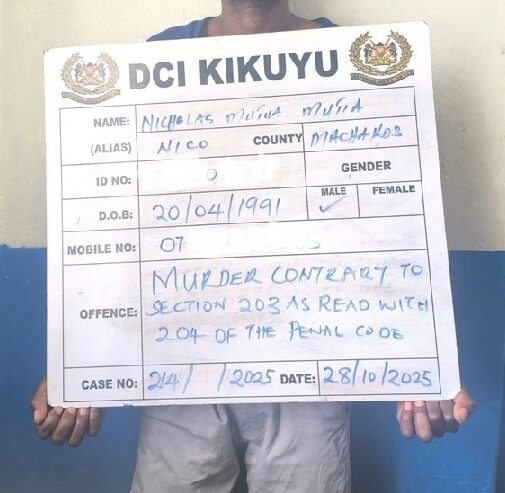 DCI KIKUYU
NAME: NICHOLAS MUTUA MUTIA
(ALIAS) NICO COUNTY MACHAKOS
ID NO: 0 GENDER
MALE FEMALE
D.O.B: 20/04/1991 ✓
MOBILE NO: 07
OFFENCE: MURDER CONTRARY TO
SECTION 203 AS READ WITH
204 OF THE PENAL CODE
CASE NO: 214/ /2025 DATE: 28/10/2025